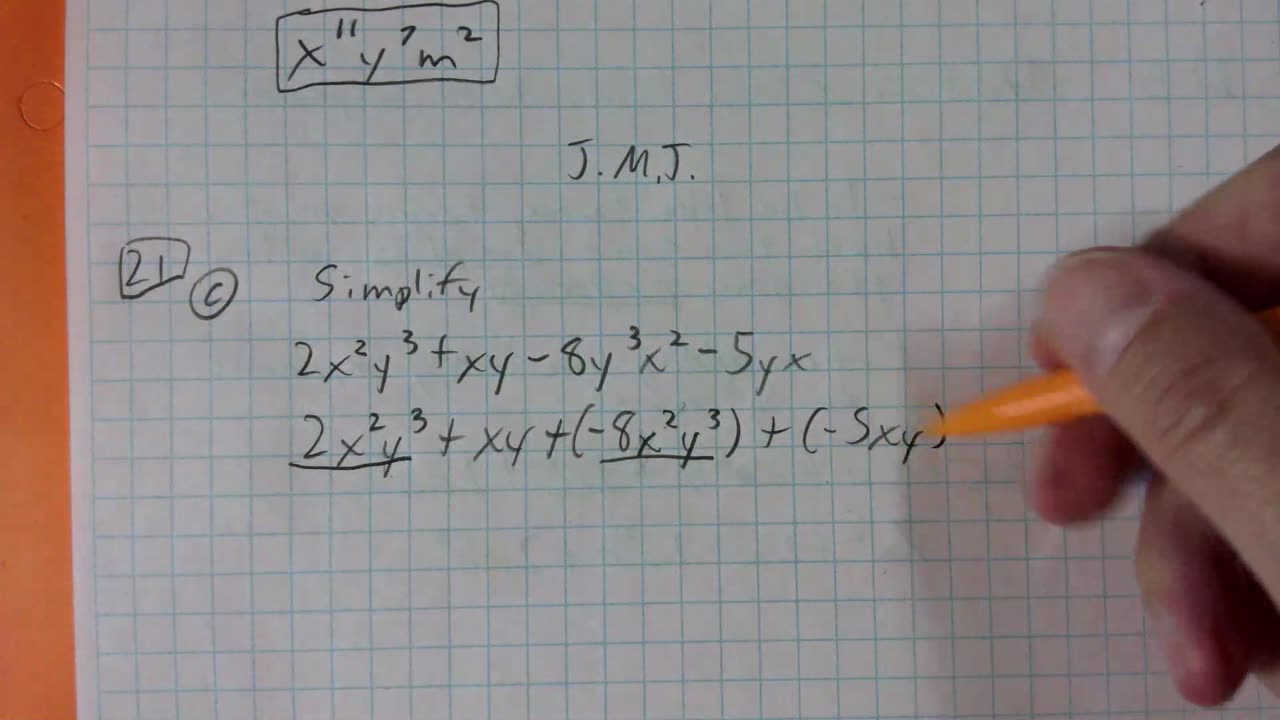 x¹¹y⁷m²
J.M.J.
21 c Simplify
2x²y³ + xy - 8y³x² - 5yx
2x²y³ + xy + (-8x²y³) + (-5xy)